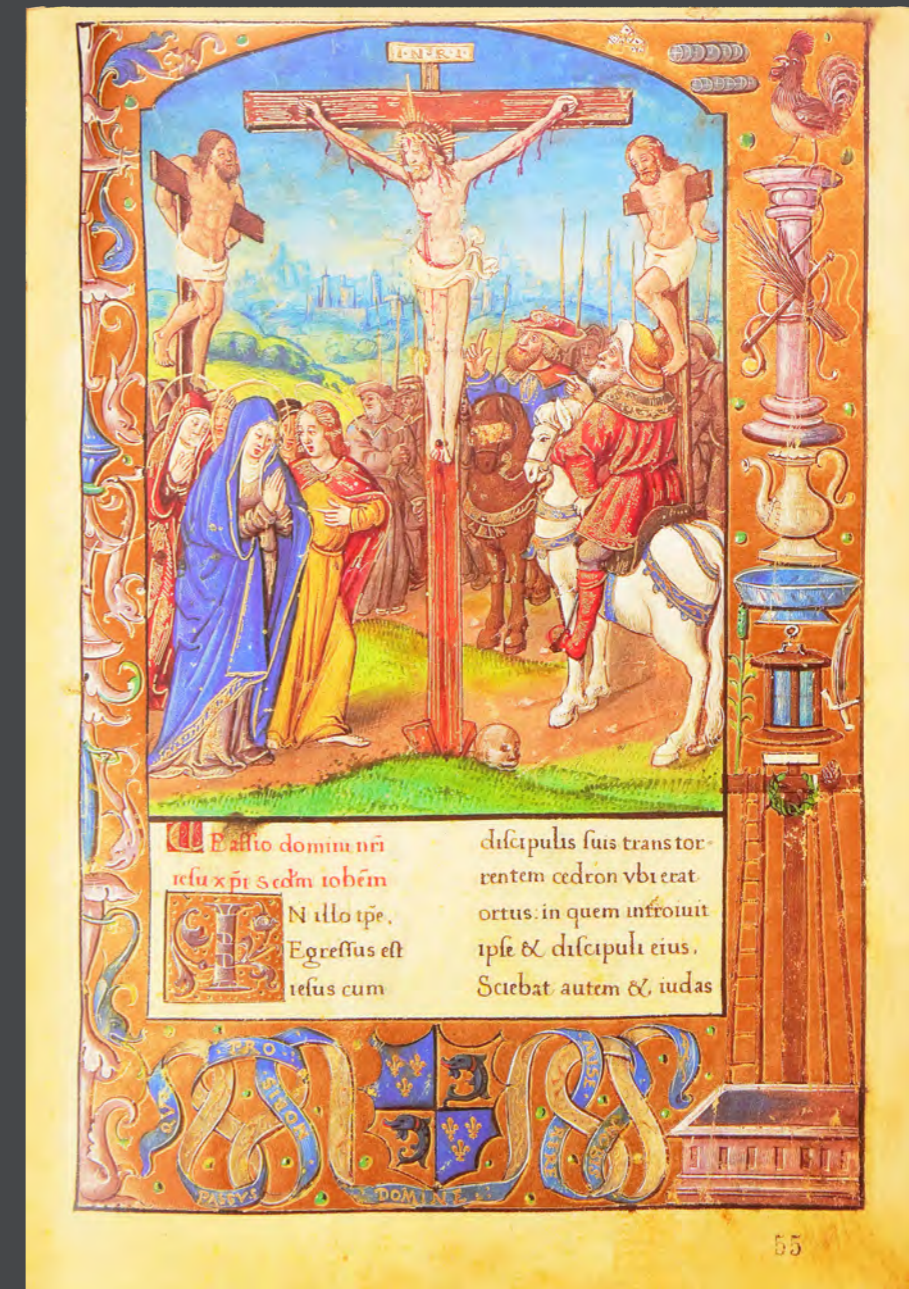 I·N·R·I
Passio domini nrī
iesu xp̄i Secdm̄ iohēm
IN illo tp̄e.
Egressus est
iesus cum
discipulis suis trans tor-
rentem cedron vbi erat
ortus: in quem introiuit
ipse & discipuli eius.
Sciebat autem & iudas
QVI
PRO
PASSVS
DOMINE
55